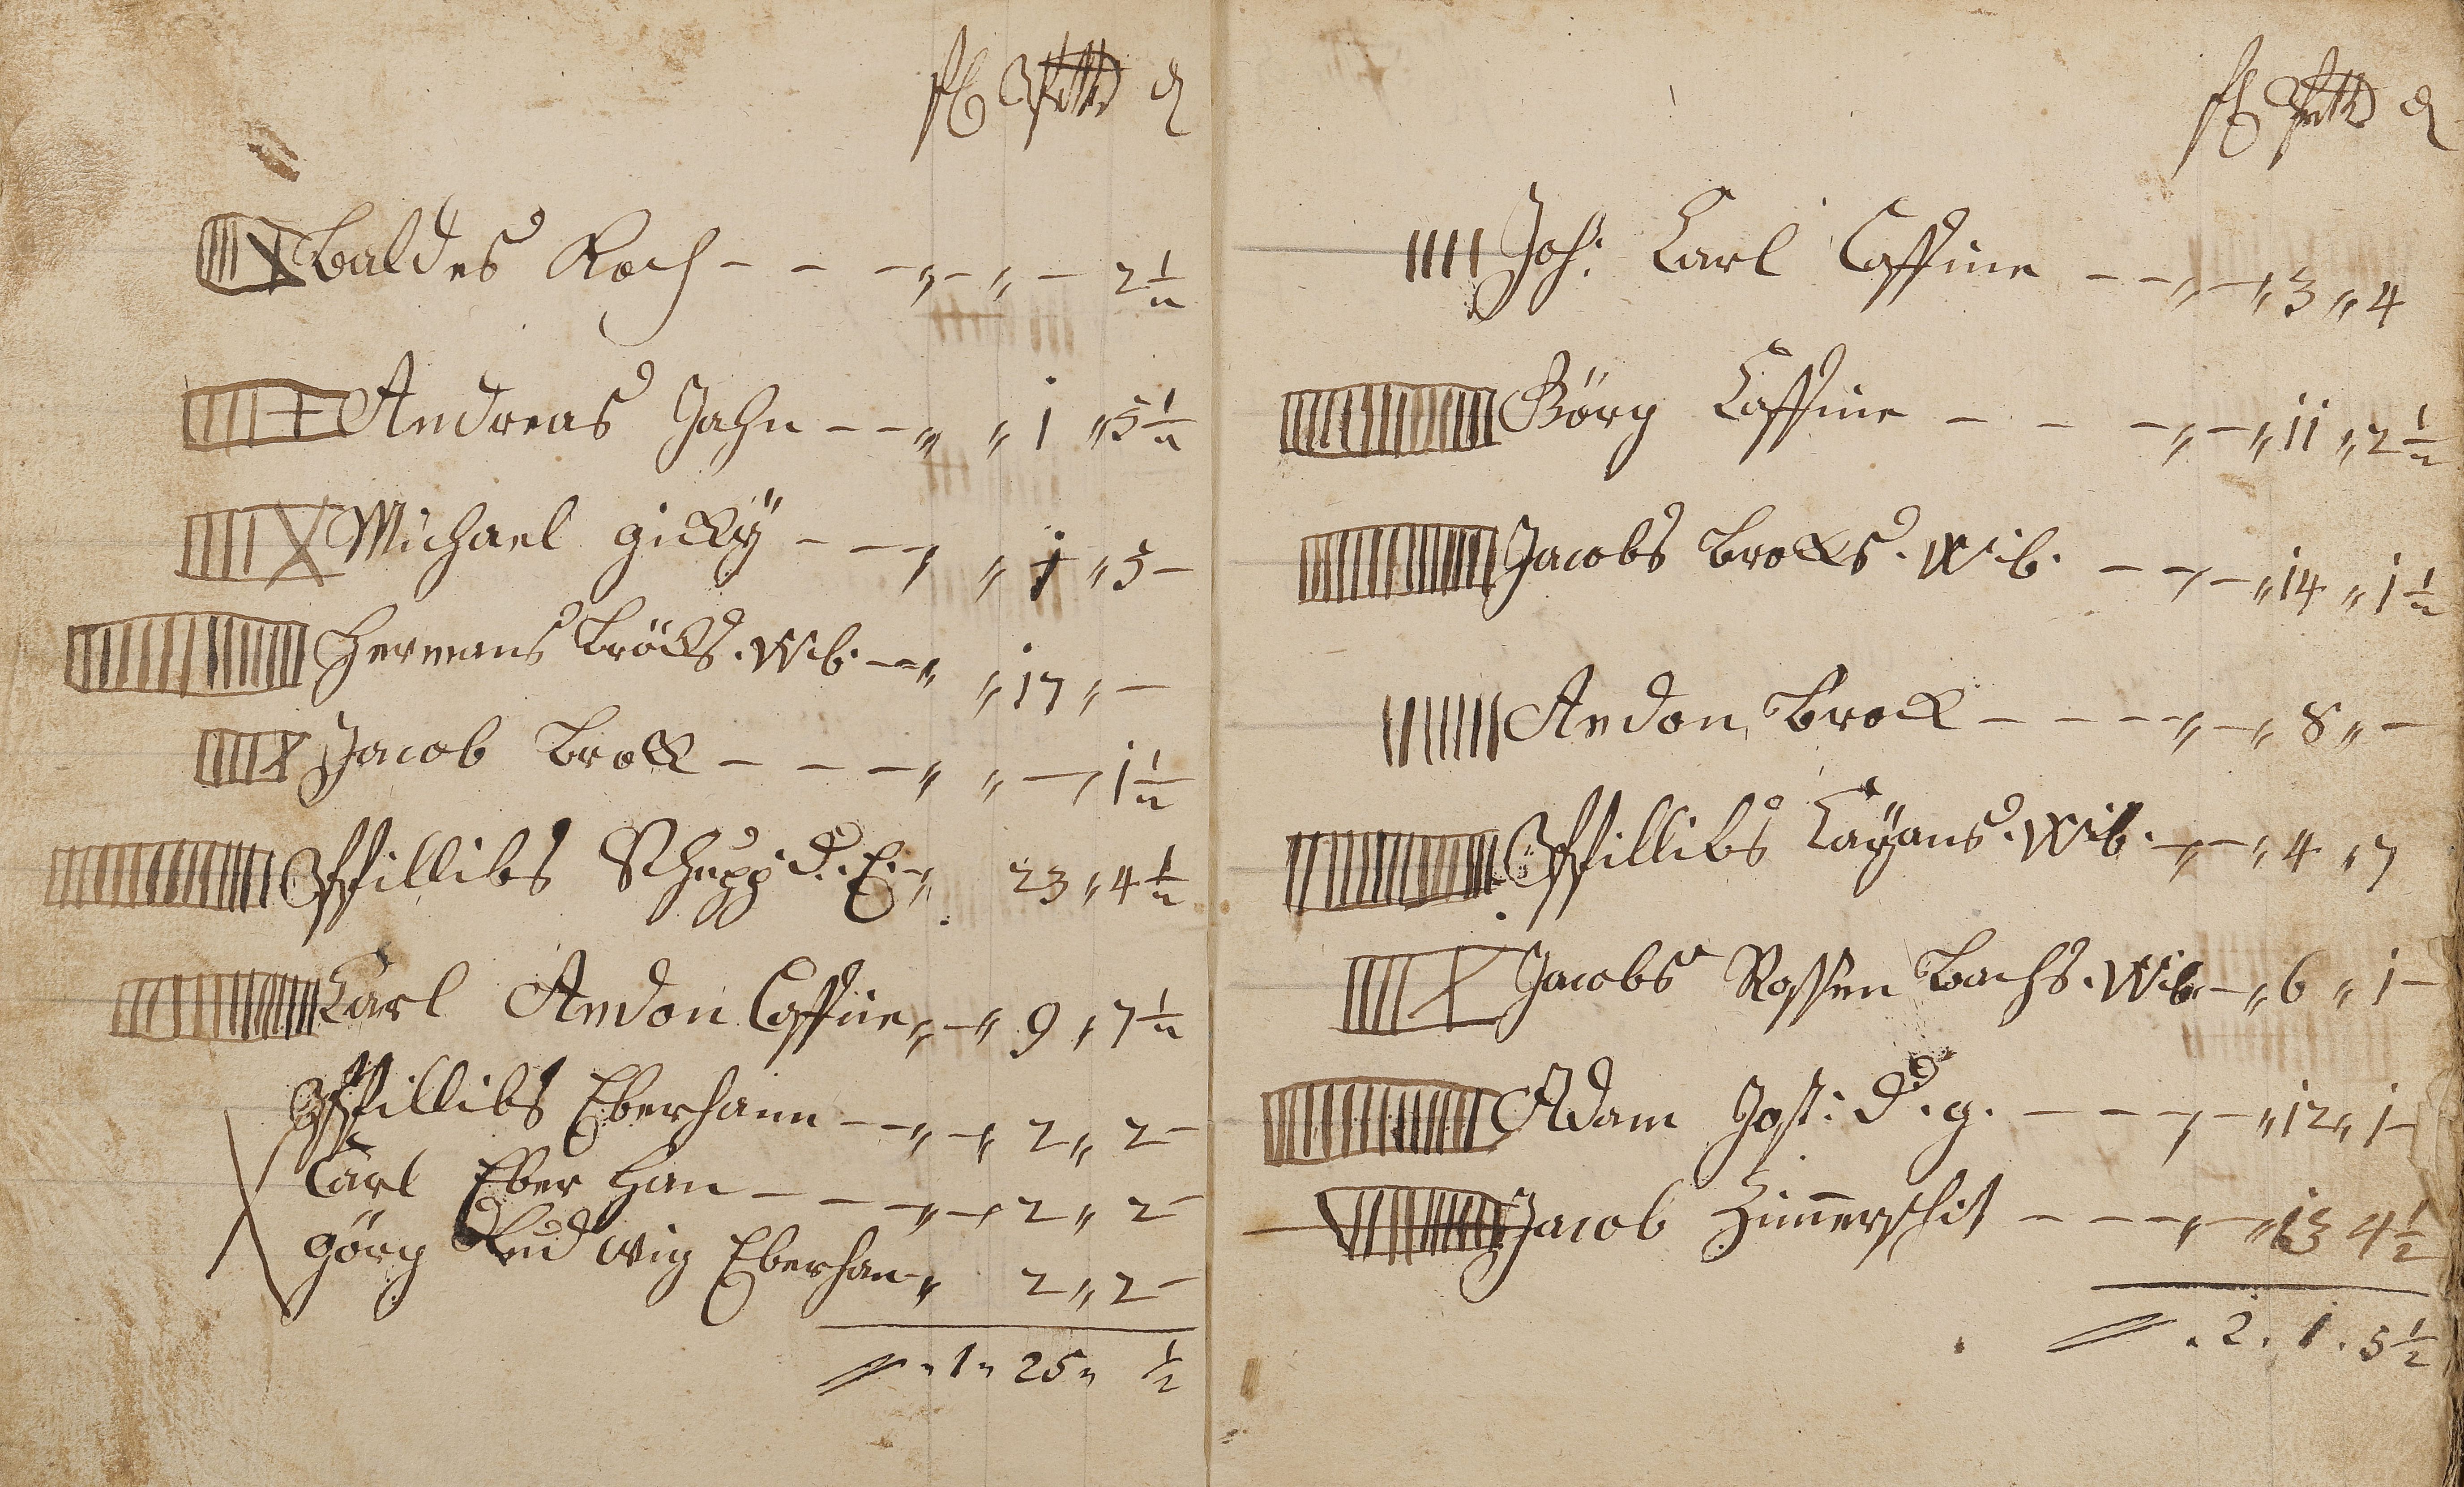 fl alb d
Baldes Koch - - - „ - „ - 2 1/2
Andreas Jahn - - „ „ 1 „ 5 1/2
Michael gicky - - - „ 1 „ 5 -
Hermans Bröcks. Wib. - - „ „ 17 „ -
Jacob Brock - - - - „ „ - 1 1/2
Pfillibs Schupp d. E. - „ 23 „ 4 1/2
Carl Andon Caffine „ - „ 9 „ 7 1/2
Pfillibs Eberhann - - „ - „ 2 „ 2 -
Carl Eber Han - - - „ - 2 „ 2 -
görg Lud wig Eberhan - „ 2 „ 2 -
„ 1 „ 25 „ 1/2
fl alb d
Joh: Carl Caffine - - „ - „ 3 „ 4
Görg Caffine - - - „ - „ 11 „ 2 1/2
Jacobs Brocks. Wib. - - - „ 14 „ 1 1/2
Andon Brock - - - - „ - „ 8 „ -
Pfillibs Cayans. Wib. - „ - „ 4 „ 7
Jacobs Rossen Bachs. Wib. - „ 6 „ 1 -
Adam Jost: d. g. - - - - „ 12 „ 1 -
Jacob Zimerschit - - - „ - „ 13 4 1/2
. 2 . 1 . 5 1/2